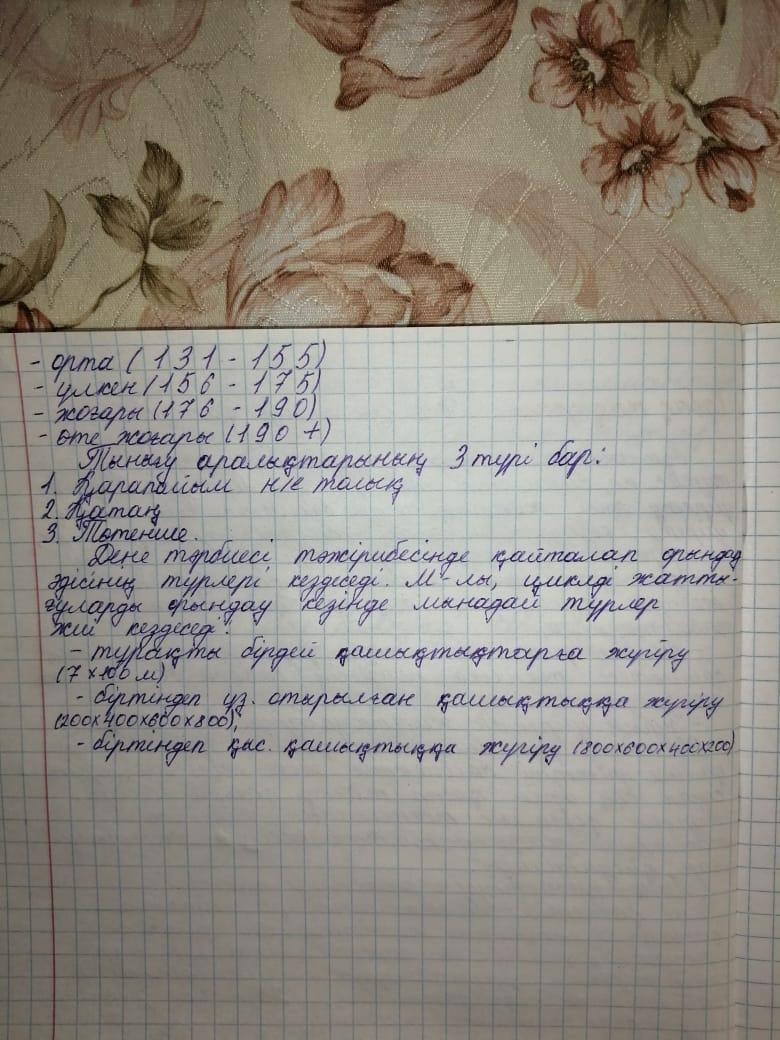 - орта (131 - 155)
- үлкен (156 - 175)
- жоғары (176 - 190)
- өте жоғары (190 +)
Тынығу аралықтарының 3 түрі бар:
1. Қарапайым н/е толық
2. Қатаң
3. Төтенше.
Дене тәрбиесі тәжірибесінде қайталап орындау
әдісінің түрлері кездеседі. М-лы, циклді жатты-
ғуларды орындау кезінде мынадай түрлер
жиі кездеседі:
- тұрақты бірдей қашықтықтарға жүгіру
(7х100 м)
- біртіндеп ұз. отырылған қашықтыққа жүгіру
(200х400х600х800);
- біртіндеп қыс. қашықтыққа жүгіру (800х600х400х200)